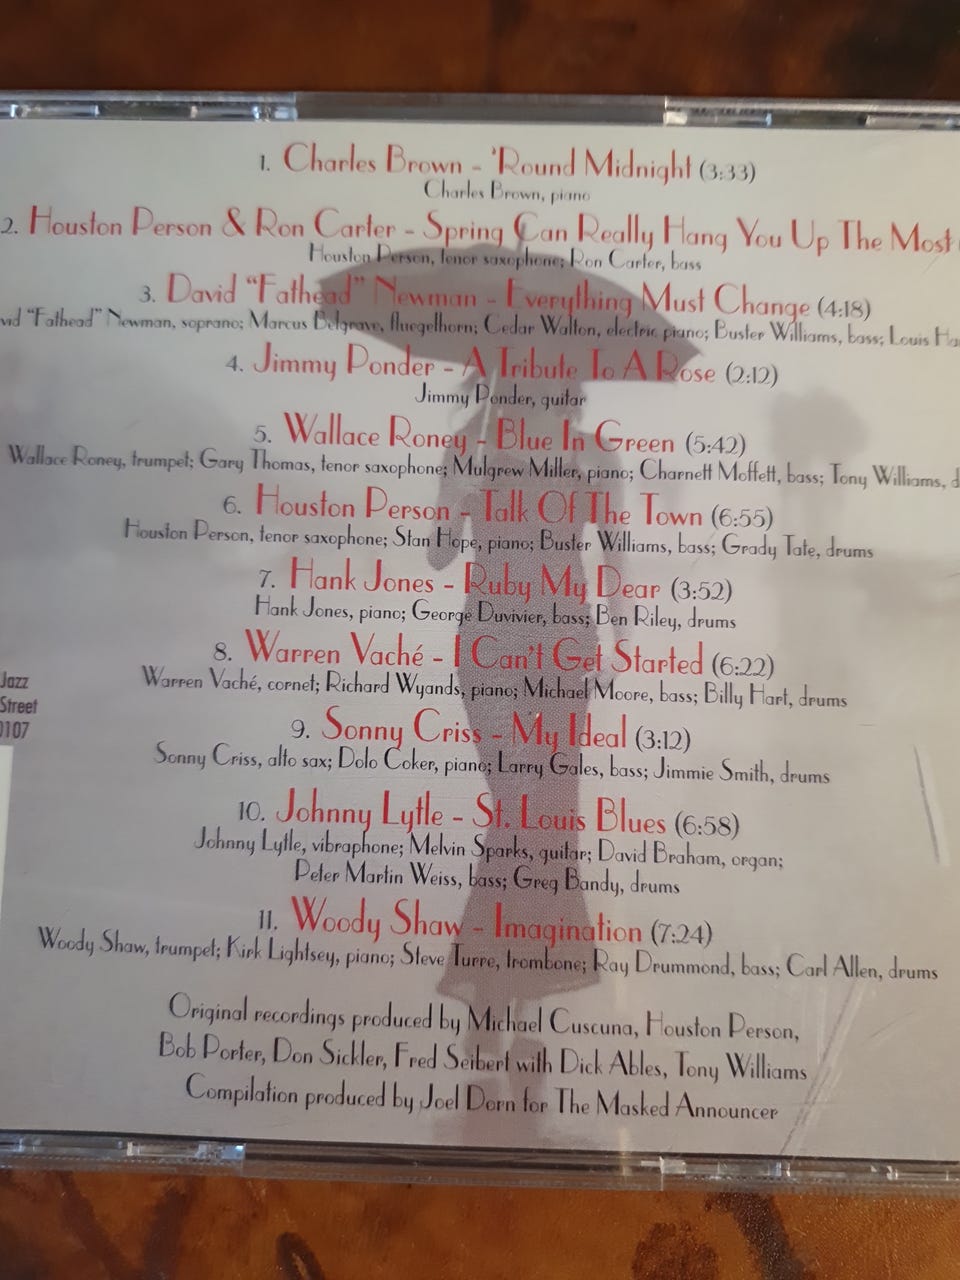 1. Charles Brown - 'Round Midnight (3:33)
Charles Brown, piano
2. Houston Person & Ron Carter - Spring Can Really Hang You Up The Most
Houston Person, tenor saxophone; Ron Carter, bass
3. David "Fathead" Newman - Everything Must Change (4:18)
"Fathead" Newman, soprano; Marcus Belgrave, fluegelhorn; Cedar Walton, electric piano; Buster Williams, bass; Louis
4. Jimmy Ponder - A Tribute To A Rose (2:12)
Jimmy Ponder, guitar
5. Wallace Roney - Blue In Green (5:42)
Wallace Roney, trumpet; Gary Thomas, tenor saxophone; Mulgrew Miller, piano; Charnett Moffett, bass; Tony Williams,
6. Houston Person - Talk Of The Town (6:55)
Houston Person, tenor saxophone; Stan Hope, piano; Buster Williams, bass; Grady Tate, drums
7. Hank Jones - Ruby My Dear (3:52)
Hank Jones, piano; George Duvivier, bass; Ben Riley, drums
8. Warren Vaché - I Can't Get Started (6:22)
Warren Vaché, cornet; Richard Wyands, piano; Michael Moore, bass; Billy Hart, drums
Jazz
Street
0107
9. Sonny Criss - My Ideal (3:12)
Sonny Criss, alto sax; Dolo Coker, piano; Larry Gales, bass; Jimmie Smith, drums
10. Johnny Lytle - St. Louis Blues (6:58)
Johnny Lytle, vibraphone; Melvin Sparks, guitar; David Braham, organ;
Peter Martin Weiss, bass; Greg Bandy, drums
11. Woody Shaw - Imagination (7:24)
Woody Shaw, trumpet; Kirk Lightsey, piano; Steve Turre, trombone; Ray Drummond, bass; Carl Allen, drums
Original recordings produced by Michael Cuscuna, Houston Person,
Bob Porter, Don Sickler, Fred Seibert with Dick Ables, Tony Williams
Compilation produced by Joel Dorn for The Masked Announcer